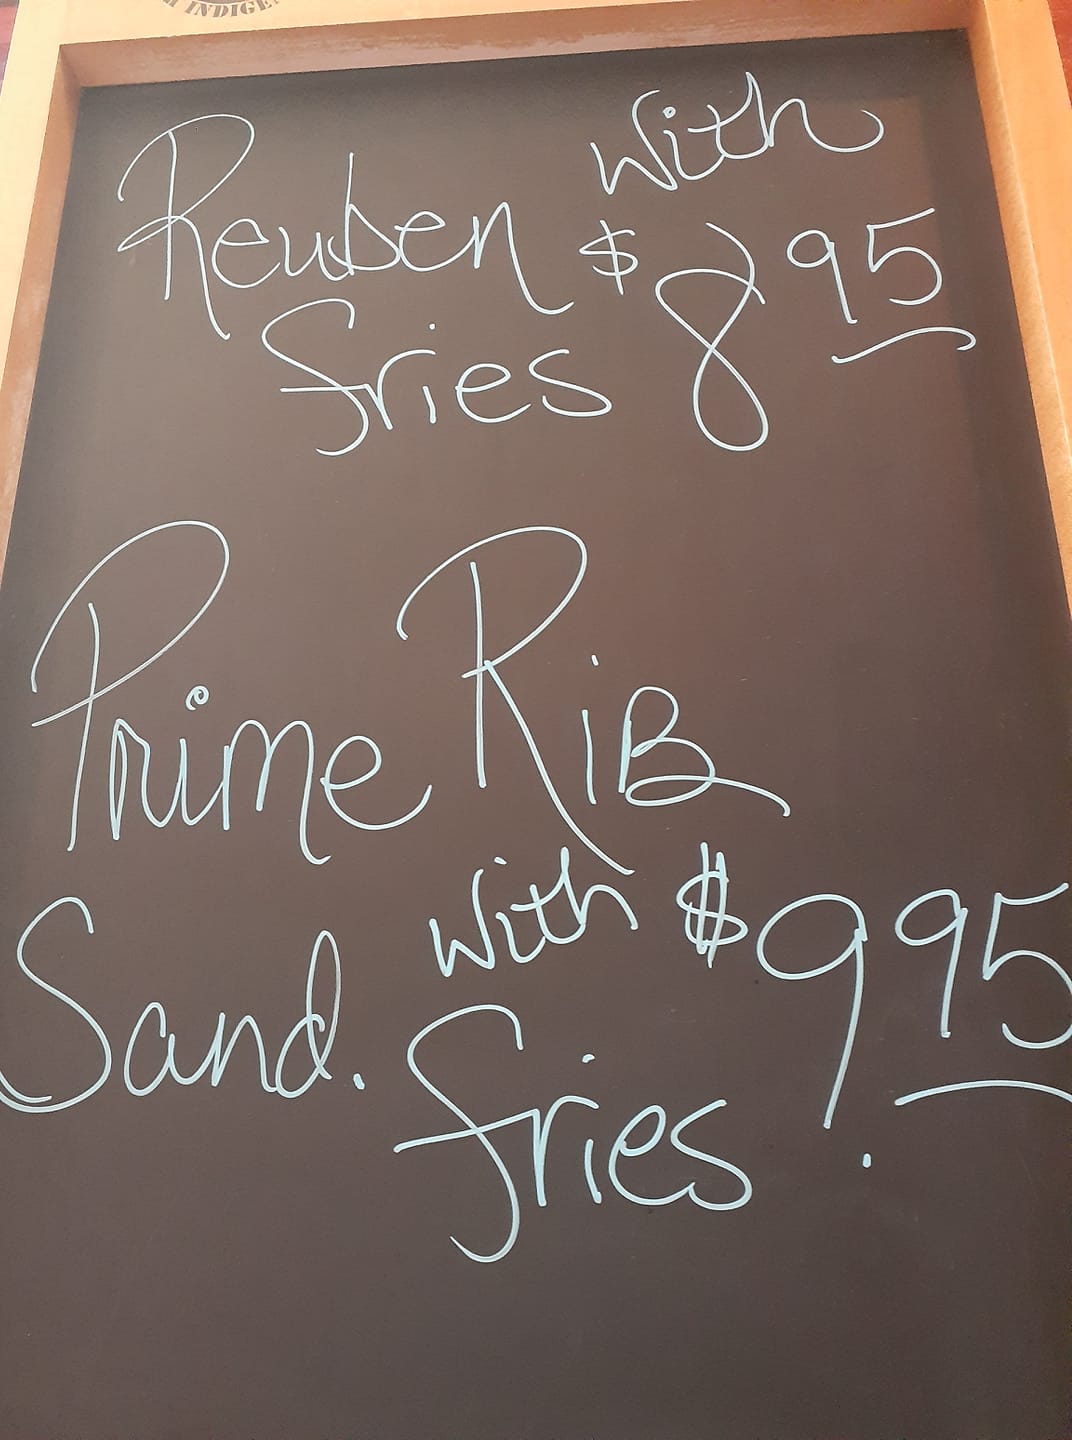 INDIGE
Reuben with
Fries $8 95
Prime Rib
Sand. with $9.95
Fries